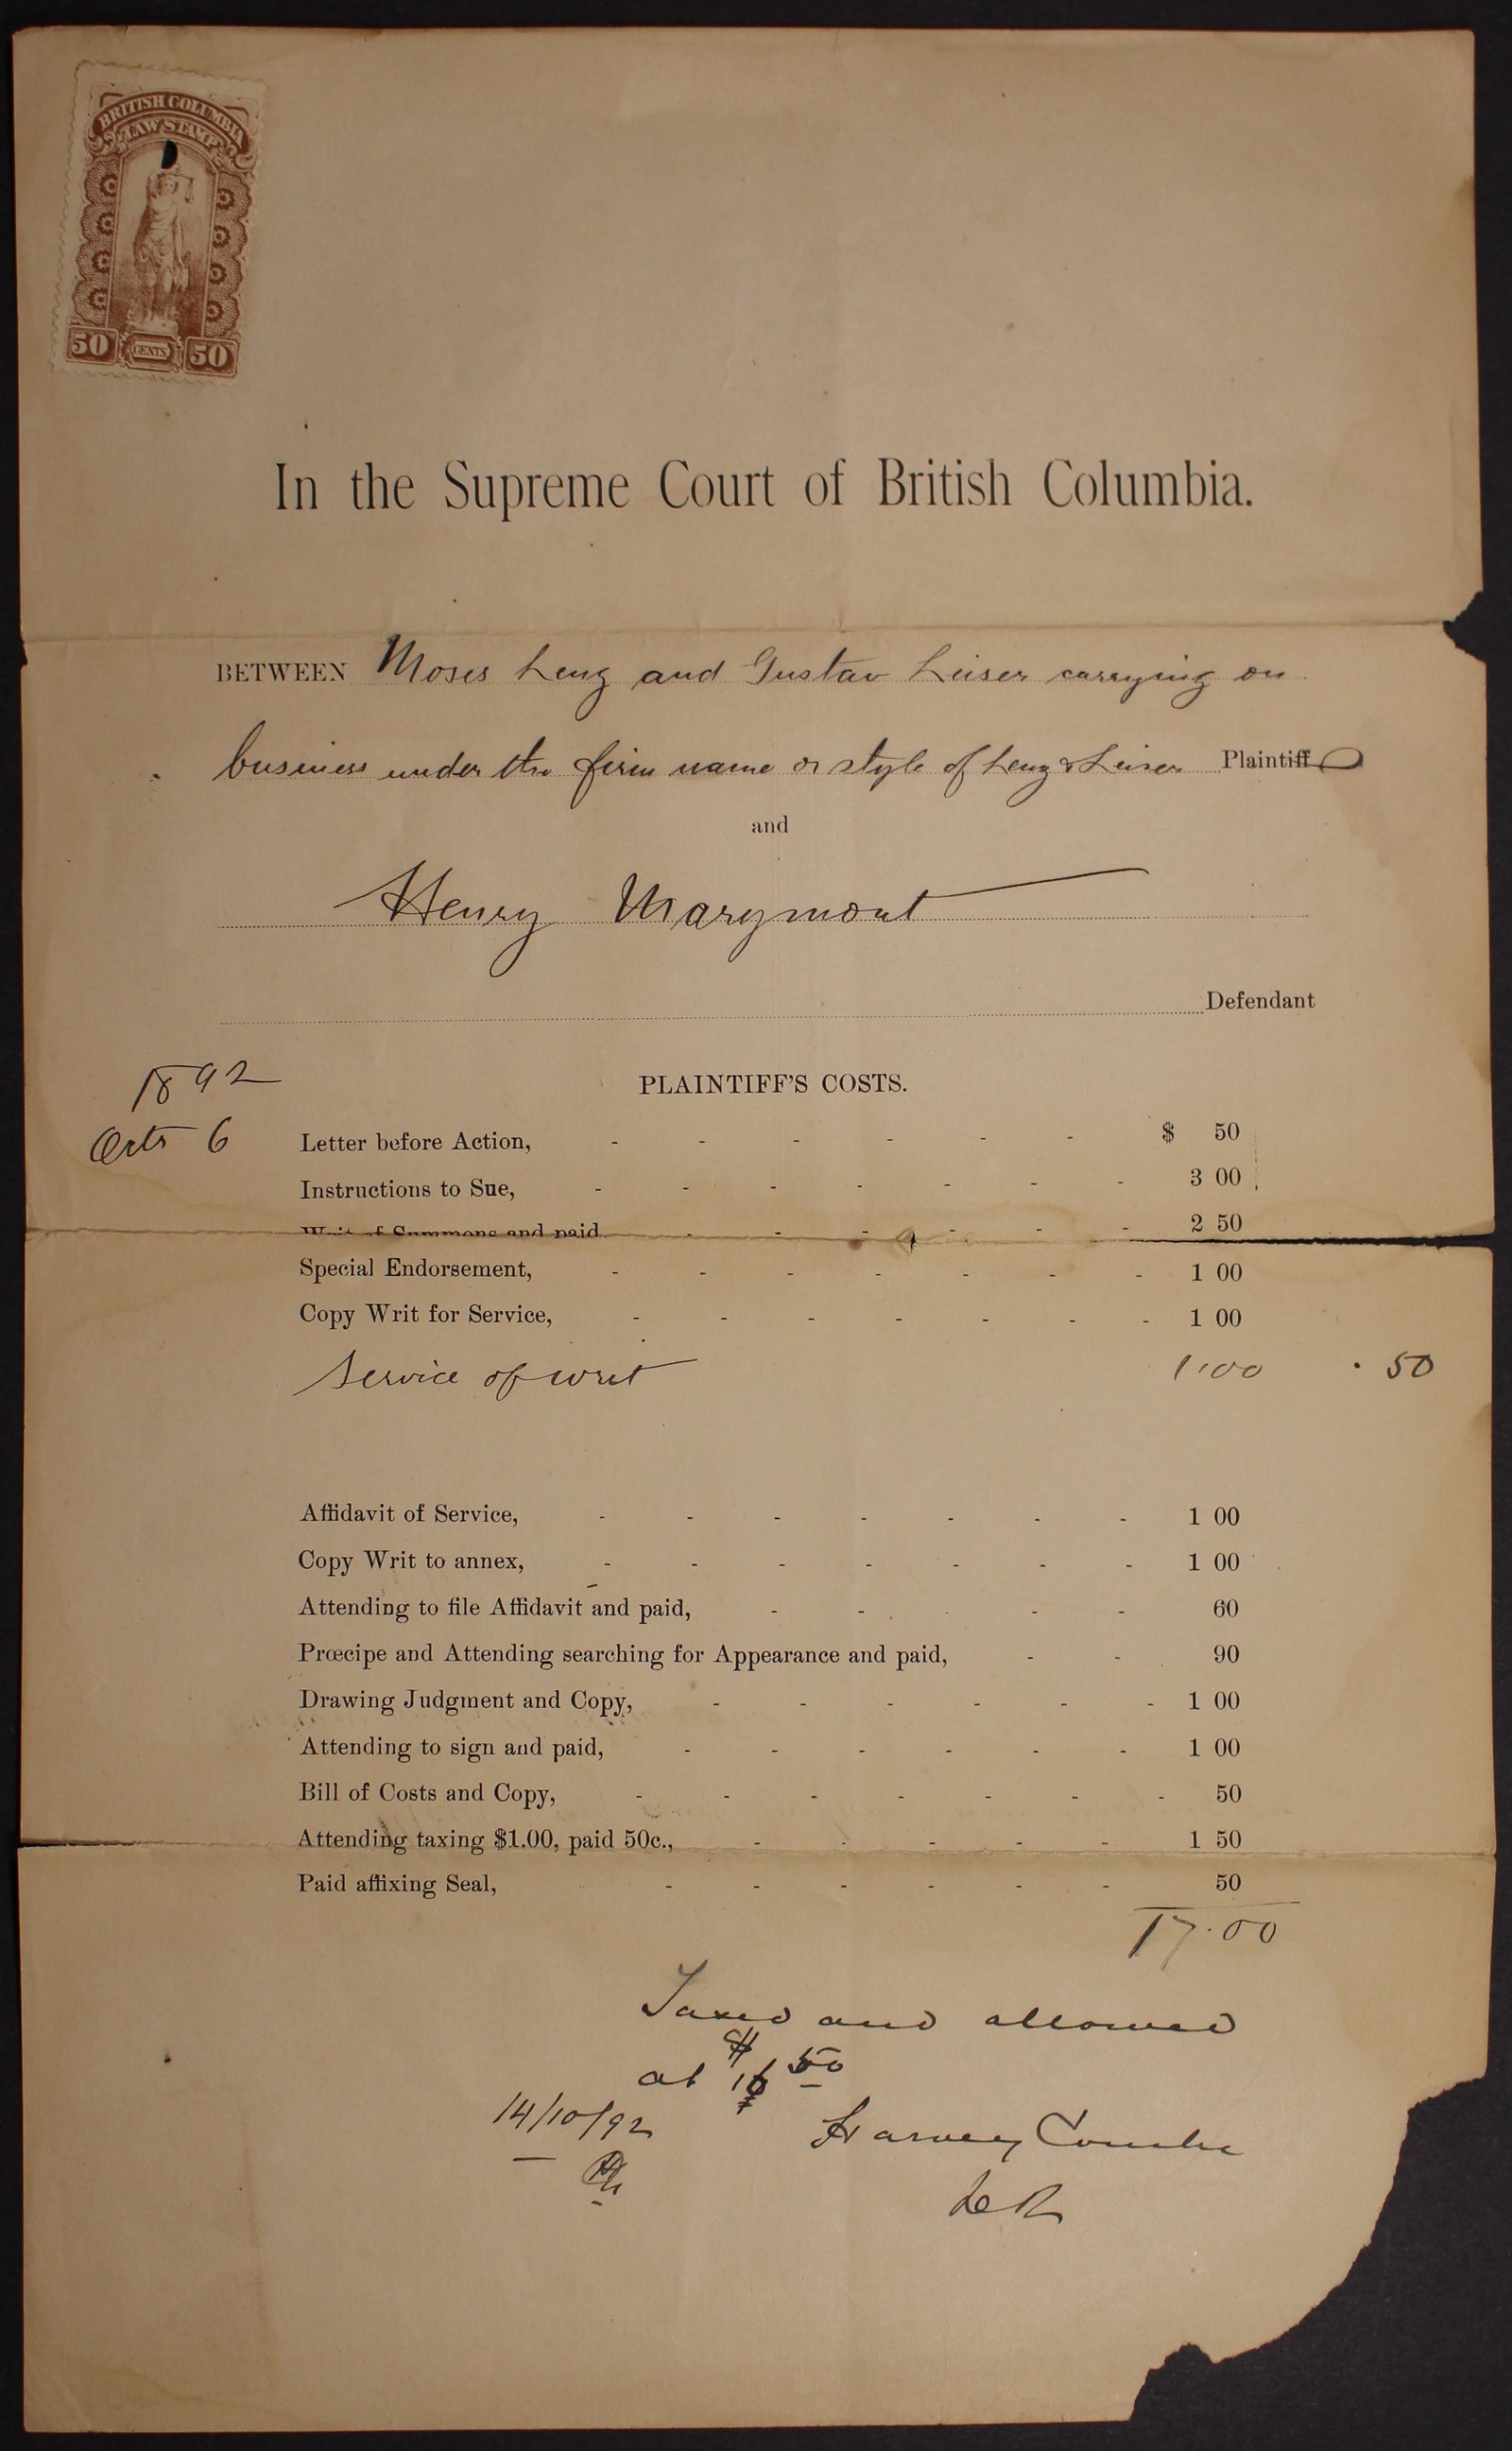 BRITISH COLUMBIA
LAW STAMP
50 CENTS 50
In the Supreme Court of British Columbia.
BETWEEN Moses Lenz and Gustav Leiser carrying on
business under the firm name or style of Lenz & Leiser Plaintiff
and
Henry Marymont
Defendant
1892
PLAINTIFF'S COSTS.
Octr 6 Letter before Action, - - - - - - $ 50
Instructions to Sue, - - - - - - - 3 00
Writ of Summons and paid - - - - - - 2 50
Special Endorsement, - - - - - - - 1 00
Copy Writ for Service, - - - - - - - 1 00
Service of writ 1.00 . 50
Affidavit of Service, - - - - - - - 1 00
Copy Writ to annex, - - - - - - - 1 00
Attending to file Affidavit and paid, - - - - 60
Prœcipe and Attending searching for Appearance and paid, - - 90
Drawing Judgment and Copy, - - - - - - 1 00
Attending to sign and paid, - - - - - - 1 00
Bill of Costs and Copy, - - - - - - - 50
Attending taxing $1.00, paid 50c., - - - - - 1 50
Paid affixing Seal, - - - - - - 50
17.00
Taxed and allowed
at $16 50
14/10/92 Harvey Combe